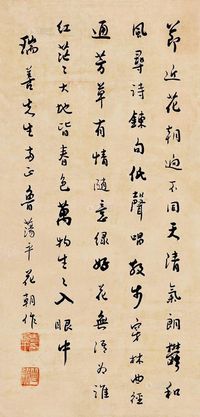 節近花朝迥不同天清氣朗鬱和
風尋詩鍊句低聲唱散步穿林曲徑
通芳草有情隨意綠好花無語為誰
紅茫々大地皆春色萬物生々入眼中
瑞善先生 正魯蕩平花朝作